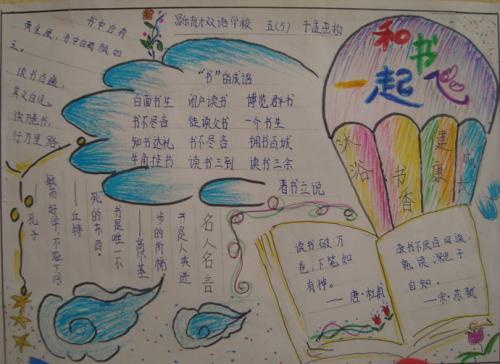 书中自有
黄金屋，书中自有颜如
玉。
读书百遍，
其义自见。
读万卷书，
行万里路。
双语学校 五(5)
和书
一起飞
沐浴书香
健康成长
“书”的成语
白面书生 闭户读书 博览群书
书不尽言 徒读父书 一介书生
知书达礼 书不尽言 拥书百城
牛角挂书 读书三到 读书三余
著书立说
名人名言
书是人类进
步的阶梯
——高尔基
书是唯一不
死的东西。
——丘特
敏而好学，不耻下问
——孔子
读书破万
卷，下笔如
有神。
——唐·杜甫
故书不厌百回读，
熟读深思子
自知。
——宋·苏轼